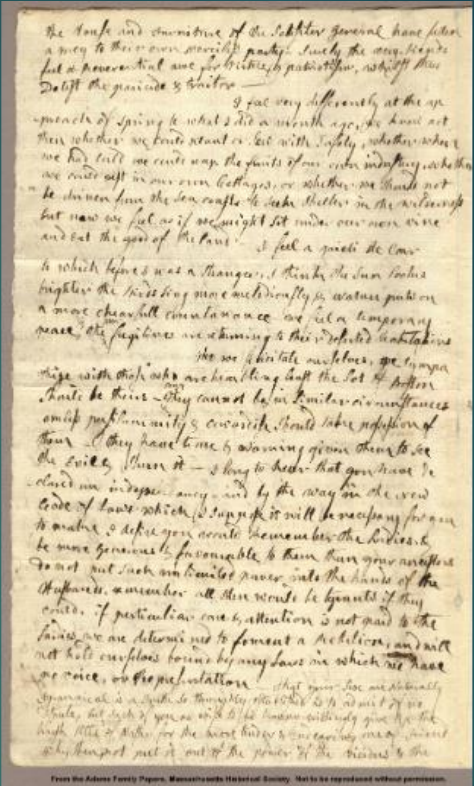 the House and furniture of the Soliciter General have fallen
a prey to their own merciless party. Surely the very Fiends
feel a Reverential awe for Virtue & patriotism, whilst they
Detest the paricide & traitor —
I feel very differently at the ap
proach of spring to what I did a month ago, we knew not
then whether we could plant or sow with safety, whether when
we had toild we could reap the fruits of our own industery, whether
we could rest in our own Cottages, or whether we should not
be driven from the sea coasts to seek shelter in the wilderness
but now we feel as if we might sit under our own vine
and eat the good of the land I feel a gaieti de Coar
to which before I was a stranger, I think the Sun looks
brighter the Birds sing more melodiously & nature puts on
a more chearfull countanance we feel a temporary
peace, & the fugitives are returning to their deserted habitations
tho we felicitate ourselves, we sympa
thize with those who are trembling least the Lot of Boston
should be theirs — they cannot be in similar circumstances
unless pusilanimity & cowardise should take possession of
them — they have time & warning given them to see
the Evil & shun it — I long to hear that you have de
clared an independancy — and by the way in the new
Code of Laws which I suppose it will be necessary for you
to make I desire you would Remember the Ladies, &
be more generous & favourable to them than your ancestors
do not put such unlimited power into the hands of the
Husbands, remember all Men would be tyrants if they
could, if perticuliar care & attention is not paid to the
Ladies we are determined to foment a Rebelion, and will
not hold ourselves bound by any Laws in which we have
no voice, or Representation — that your Sex are Naturally
Tyrannical is a Truth so thoroughly established as to admit of no
dispute, but such of you as wish to be happy willingly give up the
harsh title of Master for the more tender & endearing one of Friend
why then, not put it out of the power of the vicious & the
From the Adams Family Papers, Massachusetts Historical Society. Not to be reproduced without permission.